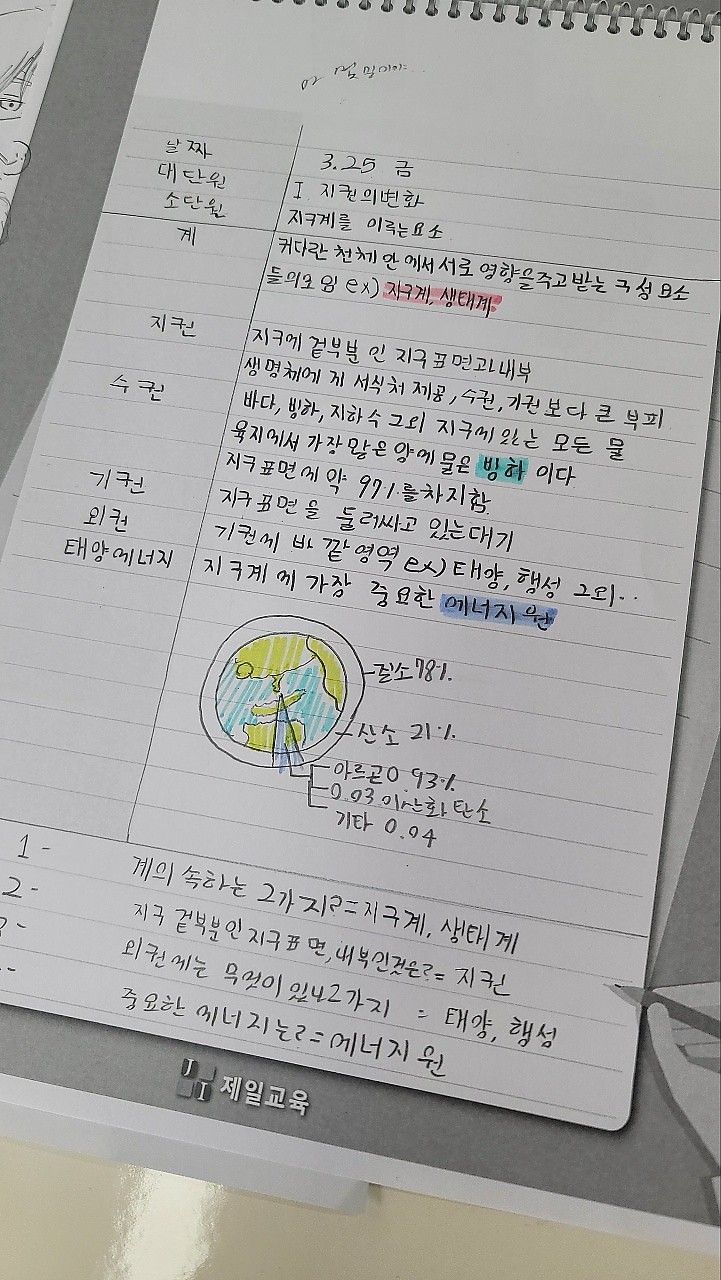 날짜 3.25 금
대단원 I. 지권의변화
소단원 지구계를 이루는요소
계 커다란 천체안에서서로 영향을주고받는 구성요소
들의모임 ex) 지구계, 생태계
지권 지구에 겉부분인 지구표면과내부
생명체에게 서식처 제공, 수권, 기권보다 큰 부피
수권 바다, 빙하, 지하수 그외 지구에있는 모든 물
육지에서 가장많은양에물은 빙하 이다
지구표면에 약 97%를차지함.
기권 지구표면을 둘러싸고 있는대기
외권 기권에 바깥영역 ex) 태양, 행성 그외..
태양에너지 지구계에 가장 중요한 에너지원
질소78%.
산소 21%.
아르곤0.93%
0.03 이산화탄소
기타 0.04
1- 계의 속하는 2가지?=지구계, 생태계
2- 지구 겉부분인지구표면,내부인것은?= 지권
외권에는 무엇이있나2가지 = 태양, 행성
중요한 에너지는?=에너지원
JI 제일교육